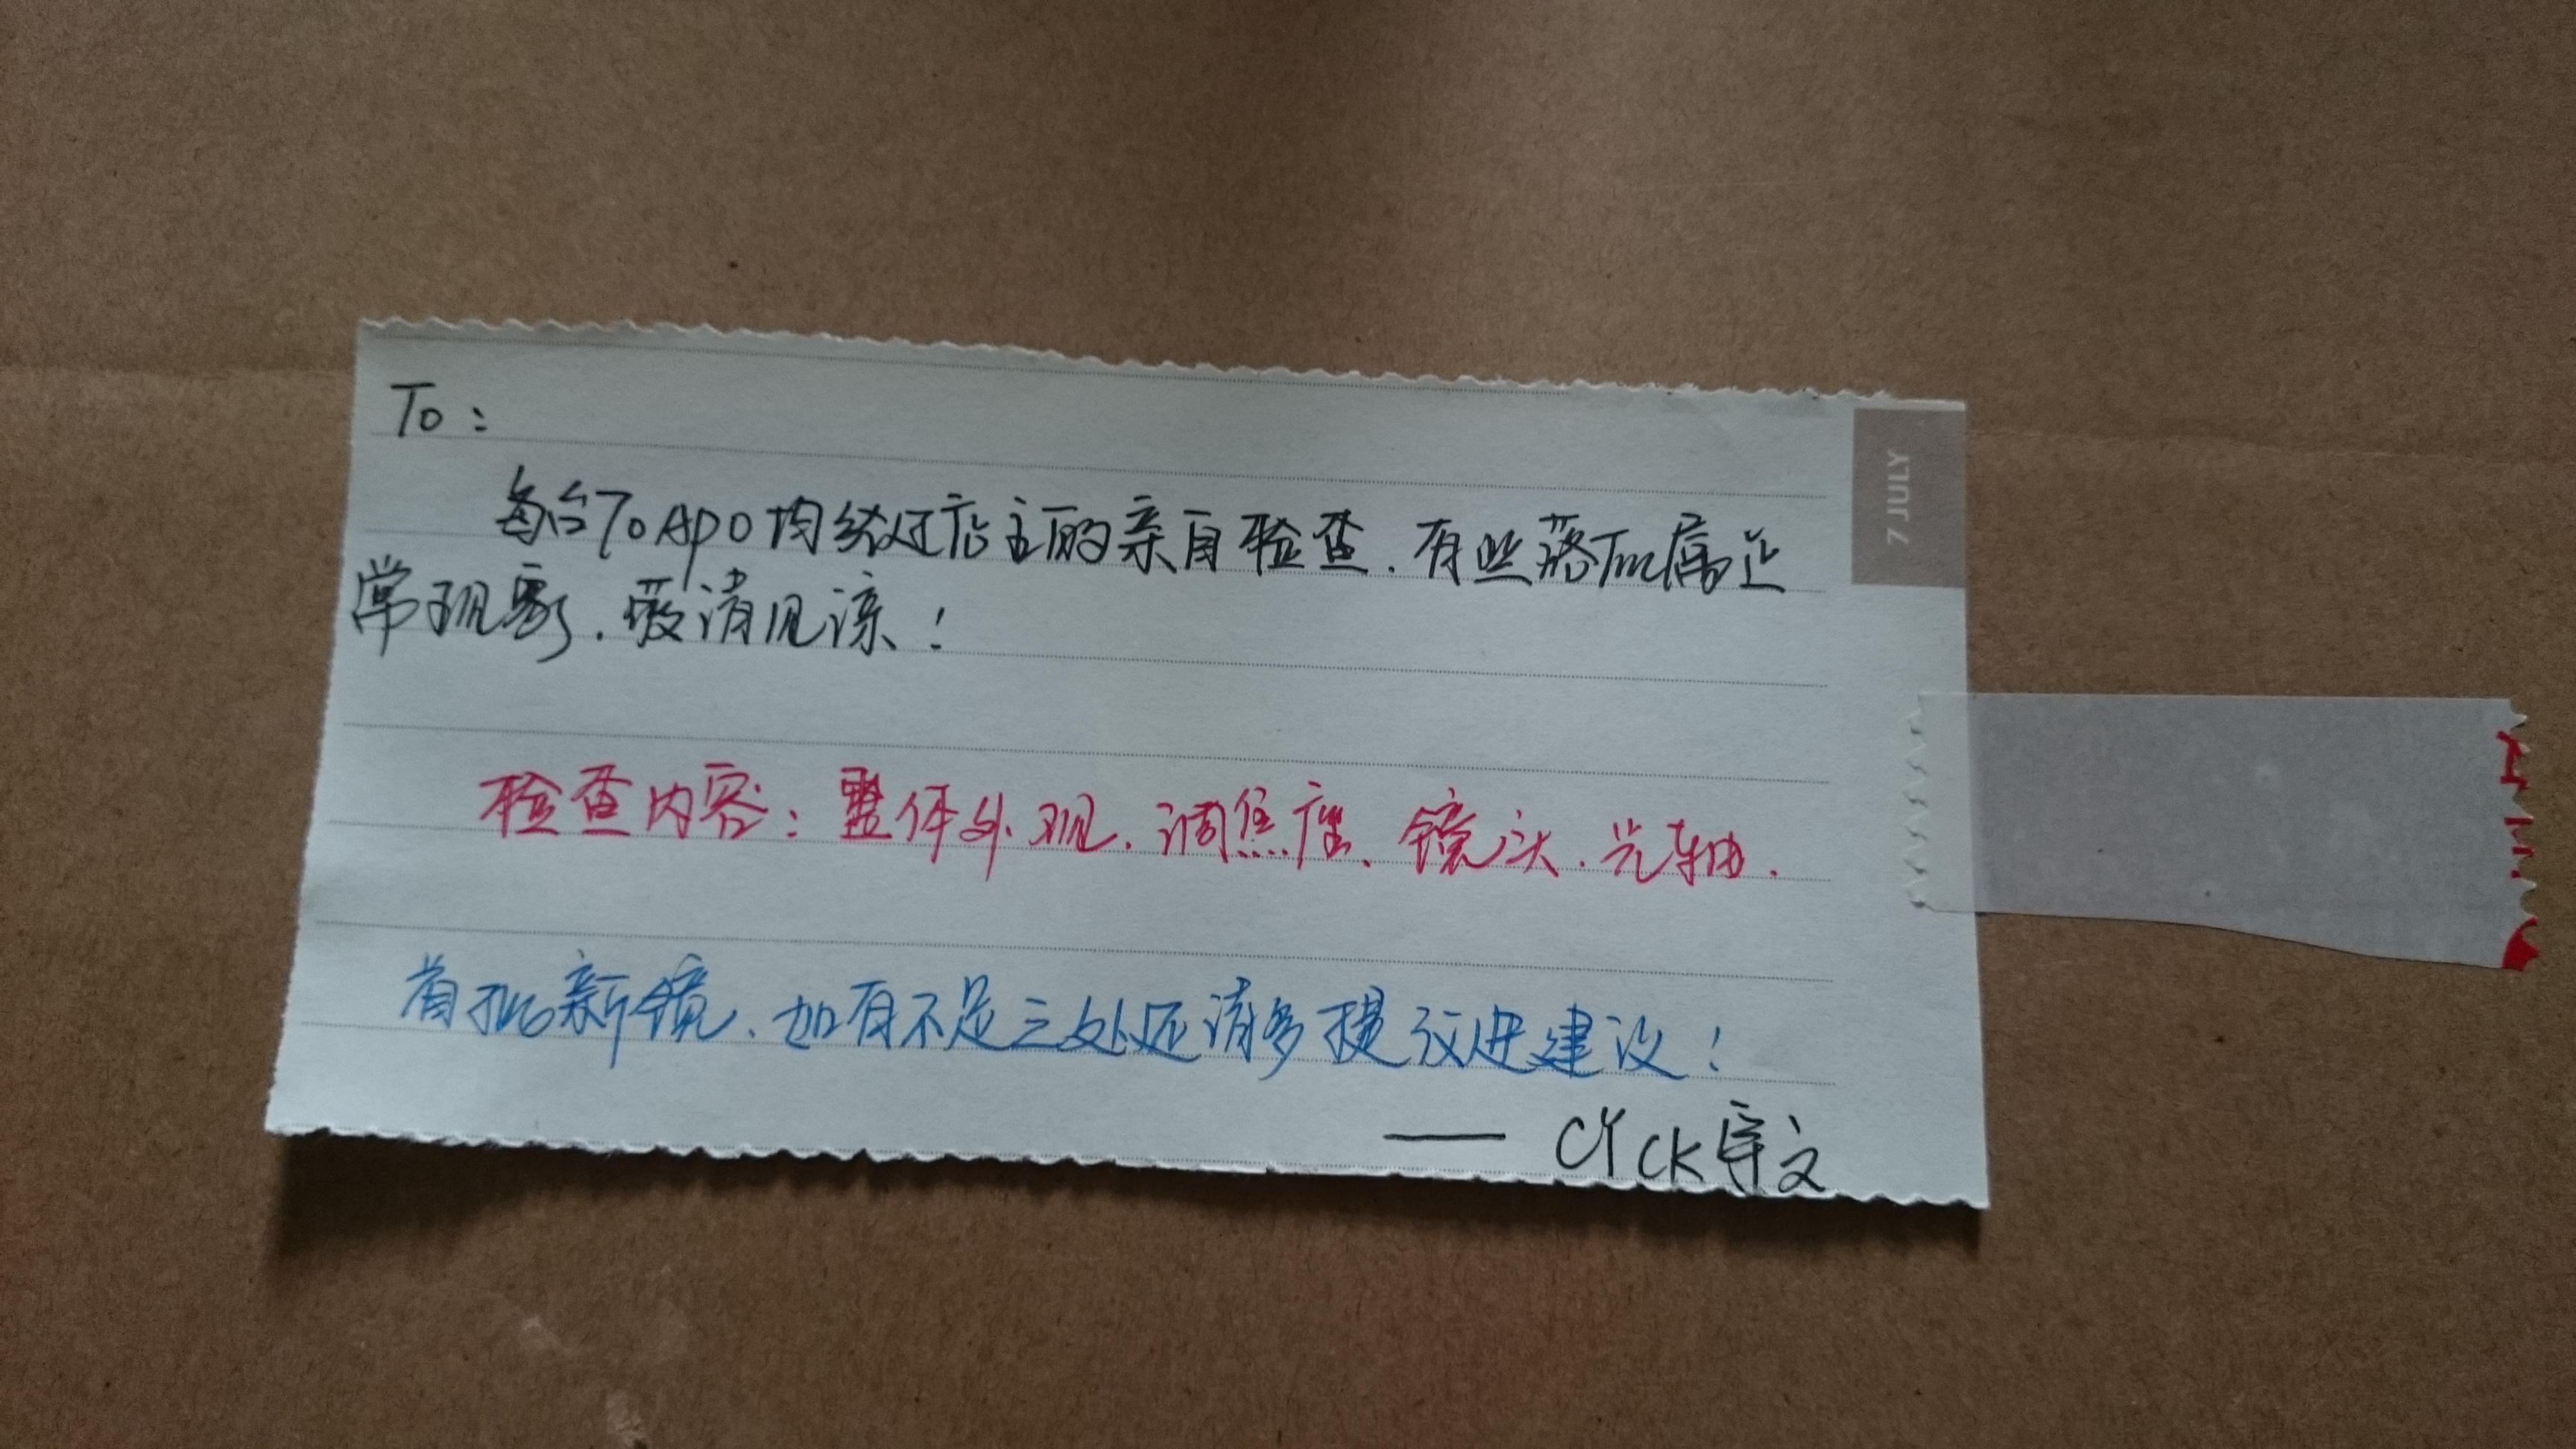 To:
每台70APO均经过店主的亲自检查.有些落灰属正
常现象.敬请见谅!
检查内容:整体外观.调焦座、镜头.光轴.
首批新镜、如有不足之处还请多提改进建议!
—— CYCK宇文
7 JULY